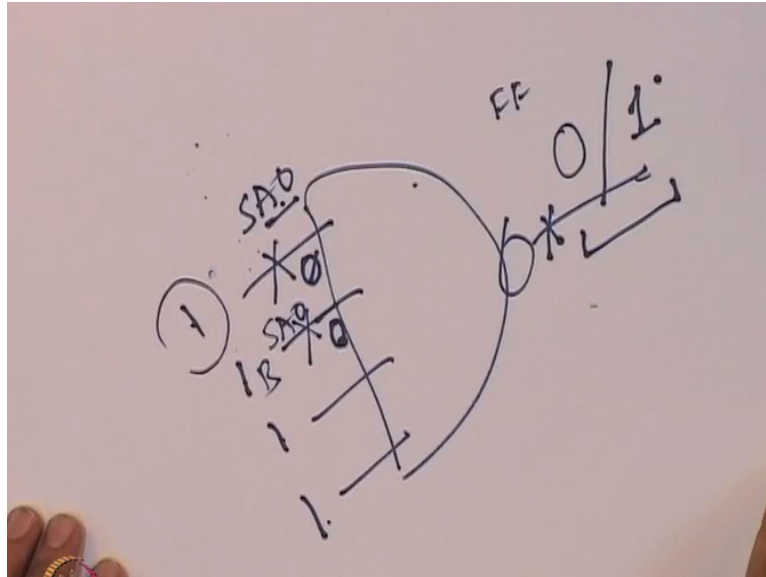 FF
0/1
SA.0
0
1
SA.0
0
1 B
1
1